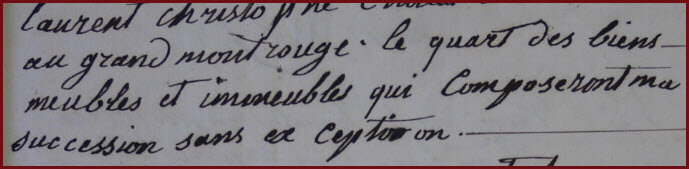 laurent christophe
au grand montrouge. le quart des biens
meubles et immeubles qui Composeront ma
succession sans ex ception.